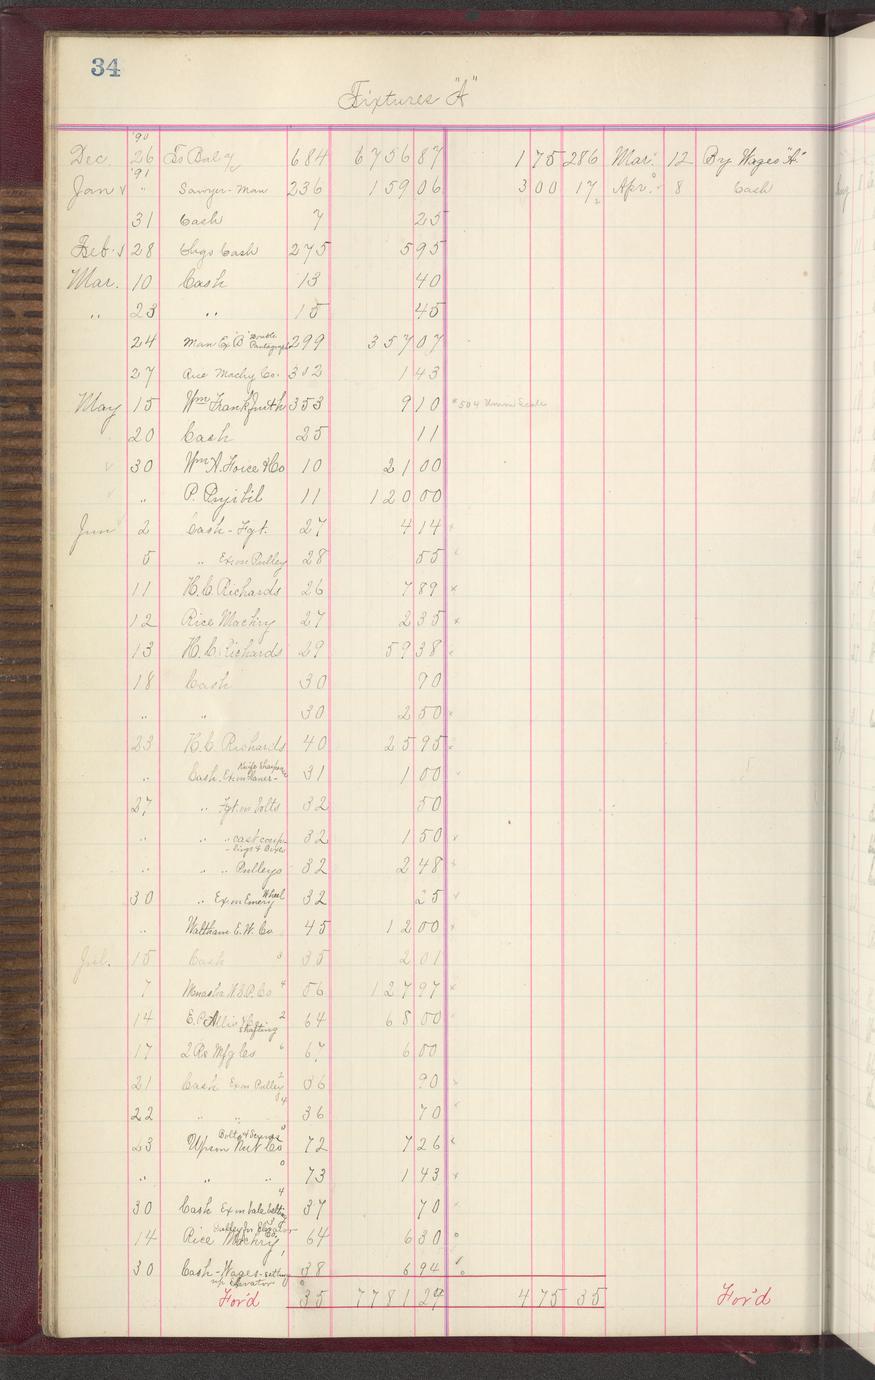 34
Fixtures "A"
'90
Dec. 26 To Bal 684 6756 87 1 75 286 Mar. 12 By Wages "A"
'91
Jan " Sawyer-Man 236 159 06 3 00 17 Apr. 8 Cash
31 Cash 7 25
Feb. 28 Chgs Cash 275 5 95
Mar. 10 Cash 13 40
" 23 " 15 45
24 Man Ex "B" Double Pantagraph 299 357 07
27 Rice Machy Co. 302 1 43
May 15 Wm Frankfurth 353 9 10 * 504 Scale
20 Cash 25 11
30 Wm A. Force & Co 10 21 00
" P. Pryibil 11 120 00
Jun 2 Cash - Fgt. 27 4 14
5 " Ex on Pulley 28 55
11 H. C. Richards 26 7 89 x
12 Rice Machry 27 2 35 x
13 H. C. Richards 29 59 38
18 Cash 30 70
" " 30 2 50
23 H. C. Richards 40 25 95
" Cash. Ex on Planer - Knife Sharpener 31 1 00
27 " Fgt. on bolts 32 50
" " " cast coup-
-lings & Boxes 32 1 50
" " " Pulleys 32 2 48
30 " Ex on Emery Wheel 32 25
" Waltham E. W. Co 45 12 00
Jul. 15 Cash 35 2 01
7 Menasha W. S. P. Co 56 127 97 x
14 E. P. Allis & Co Shafting 64 68 00
17 2 Re Mfg Co 67 6 00
21 Cash Ex on Pulley 36 90
22 " " 36 70
23 Upson Nut Co Bolts & Screws 72 7 26
" " " 73 1 43
30 Cash Ex on bale belting 37 70
14 Rice Machry Co. Pulley for Elevator 64 6 30
30 Cash - Wages - setting
up Elevator 38 6 94
For'd 35 7781 27 4 75 35 For'd